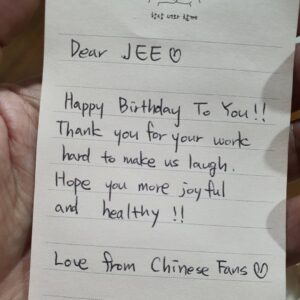 항상 너와 함께
Dear JEE ♡
Happy Birthday To You!!
Thank you for your work
hard to make us laugh.
Hope you more joyful
and healthy !!
Love from Chinese Fans ♡